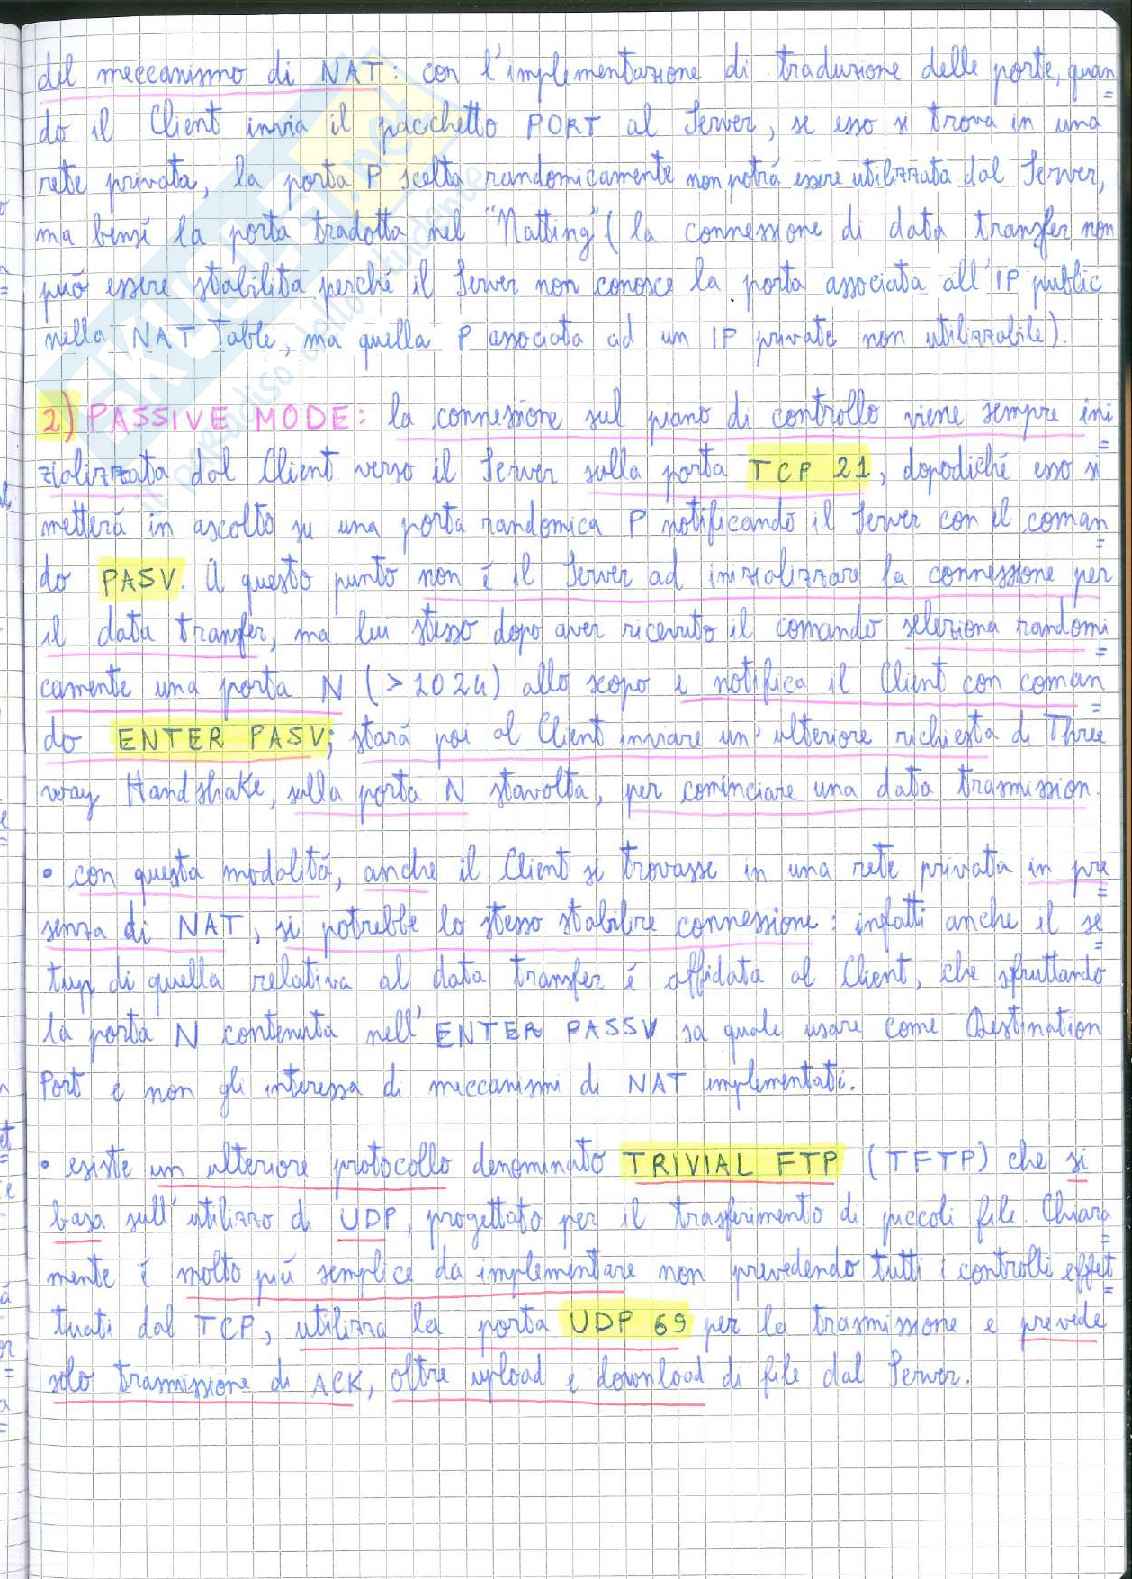 del meccanismo di NAT: con l'implementazione di traduzione delle porte, quan=
do il Client invia il pacchetto PORT al Server, se esso si trova in una
rete privata, la porta P scelta randomicamente non potrá essere utilizzata dal Server,
ma bensí la porta tradotta nel "Natting" (la connessione di data transfer non
puó essere stabilita perché il Server non conosce la porta associata all'IP public
nella NAT Table, ma quella P associata ad un IP private non utilizzabile).
2) PASSIVE MODE: la connessione sul piano di controllo viene sempre ini=
zializzata dal Client verso il Server sulla porta TCP 21, dopodiché esso si
metterá in ascolto su una porta randomica P notificando il Server con il coman=
do PASV. A questo punto non é il Server ad inizializzare la connessione per
il data transfer, ma lui stesso dopo aver ricevuto il comando seleziona randomi=
camente una porta N (>1024) allo scopo e notifica il Client con coman=
do ENTER PASV; stará poi al Client inviare un' ulteriore richiesta di Three
way Handshake, sulla porta N stavolta, per cominciare una data trasmission.
• con questa modalitá, anche il Client si trovasse in una rete privata in pre=
senza di NAT, si potrebbe lo stesso stabilire connessione: infatti anche il se=
tup di quella relativa al data transfer é affidata al Client, che sfruttando
la porta N contenuta nell' ENTER PASSV sa quale usare come Destination
Port e non gli interessa di meccanismi di NAT implementati.
• esiste un ulteriore protocollo denominato TRIVIAL FTP (TFTP) che si
basa sull' utilizzo di UDP, progettato per il trasferimento di piccoli file. Chiara=
mente é molto piú semplice da implementare non prevedendo tutti i controlli effet=
tuati dal TCP, utilizza la porta UDP 69 per la trasmissione e prevede
solo trasmissione di ACK, oltre upload e download di file dal Server.